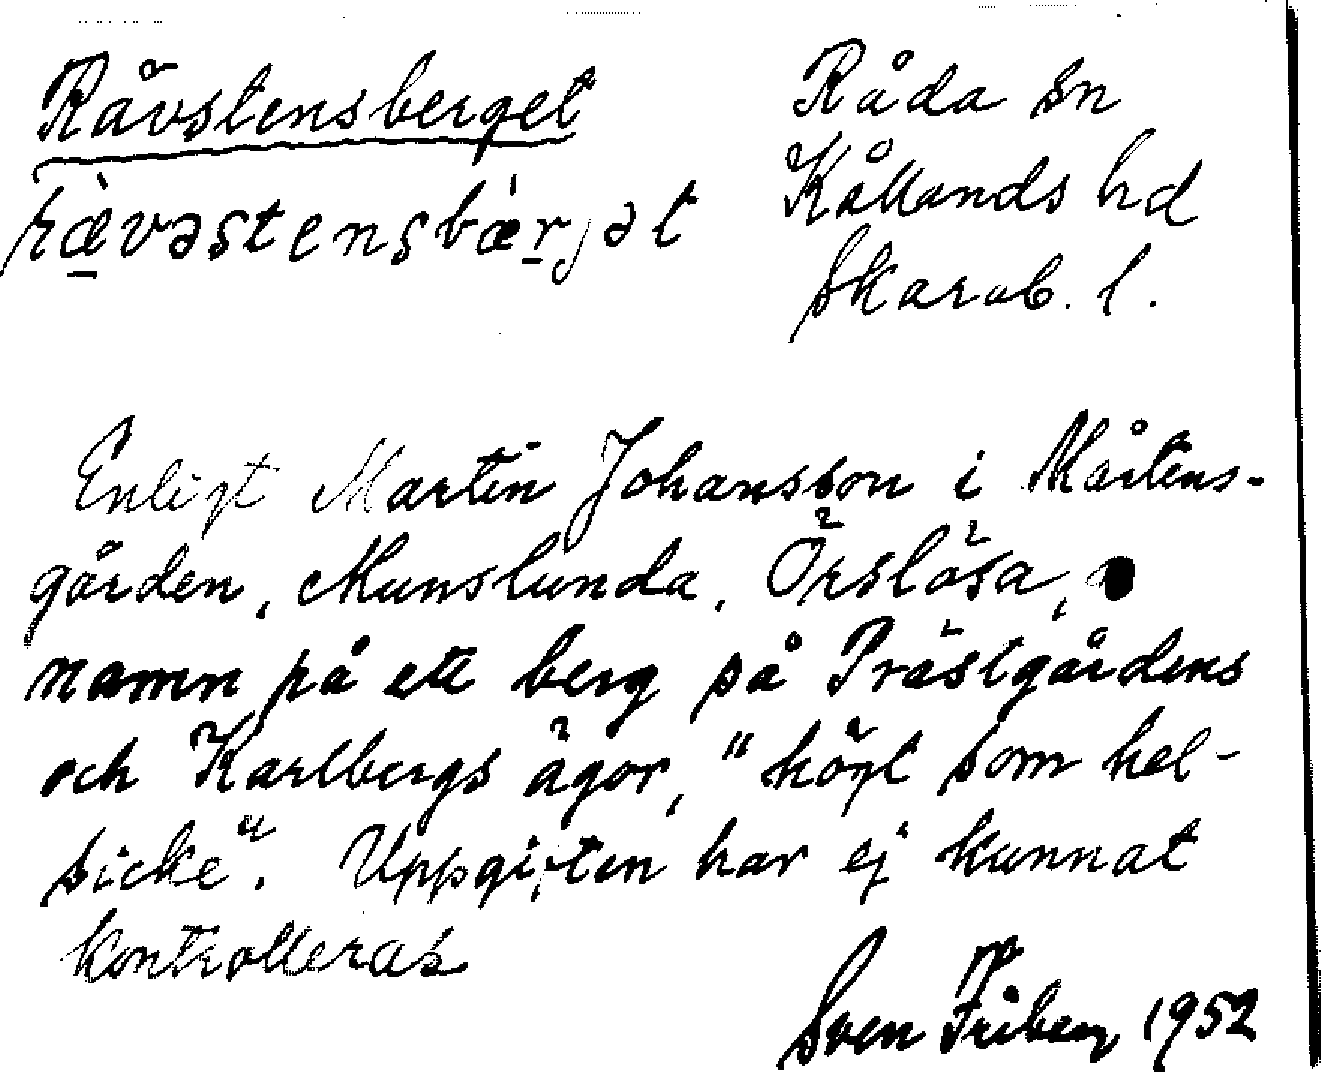 Rävstensberget
Råda sn
Kållands hd
Skarab. l.
ræ̀vəstensbæ̀rjət
Enligt Martin Johansson i Mårtens-
gården, Munslunda, Örslösa,
namn på ett berg på Prästgårdens
och Karlbergs ägor, "högt som hel-
sicke". Uppgiften har ej kunnat
kontrolleras
Sven Friberg 1952